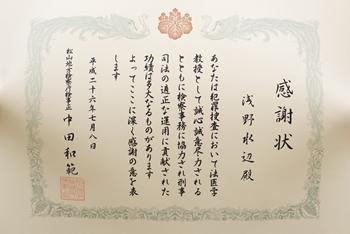 感謝状
浅野水辺殿
あなたは犯罪捜査において法医学
教授として誠心誠意尽力される
とともに検察事務に協力され刑事
司法の適正な運用に貢献された
功績は多大なるものがあります
よってここに深く感謝の意を表
します
平成二十六年七月八日
松山地方検察庁検事正
中田和範